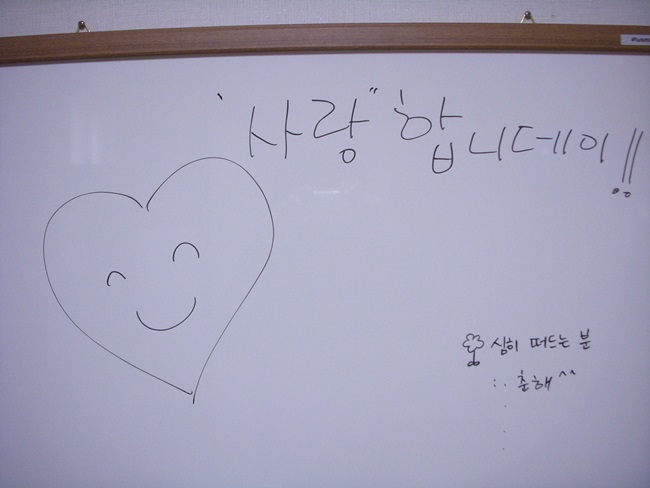 '사랑" 합니데이!!
심히 떠드는 분
: 춘해^^